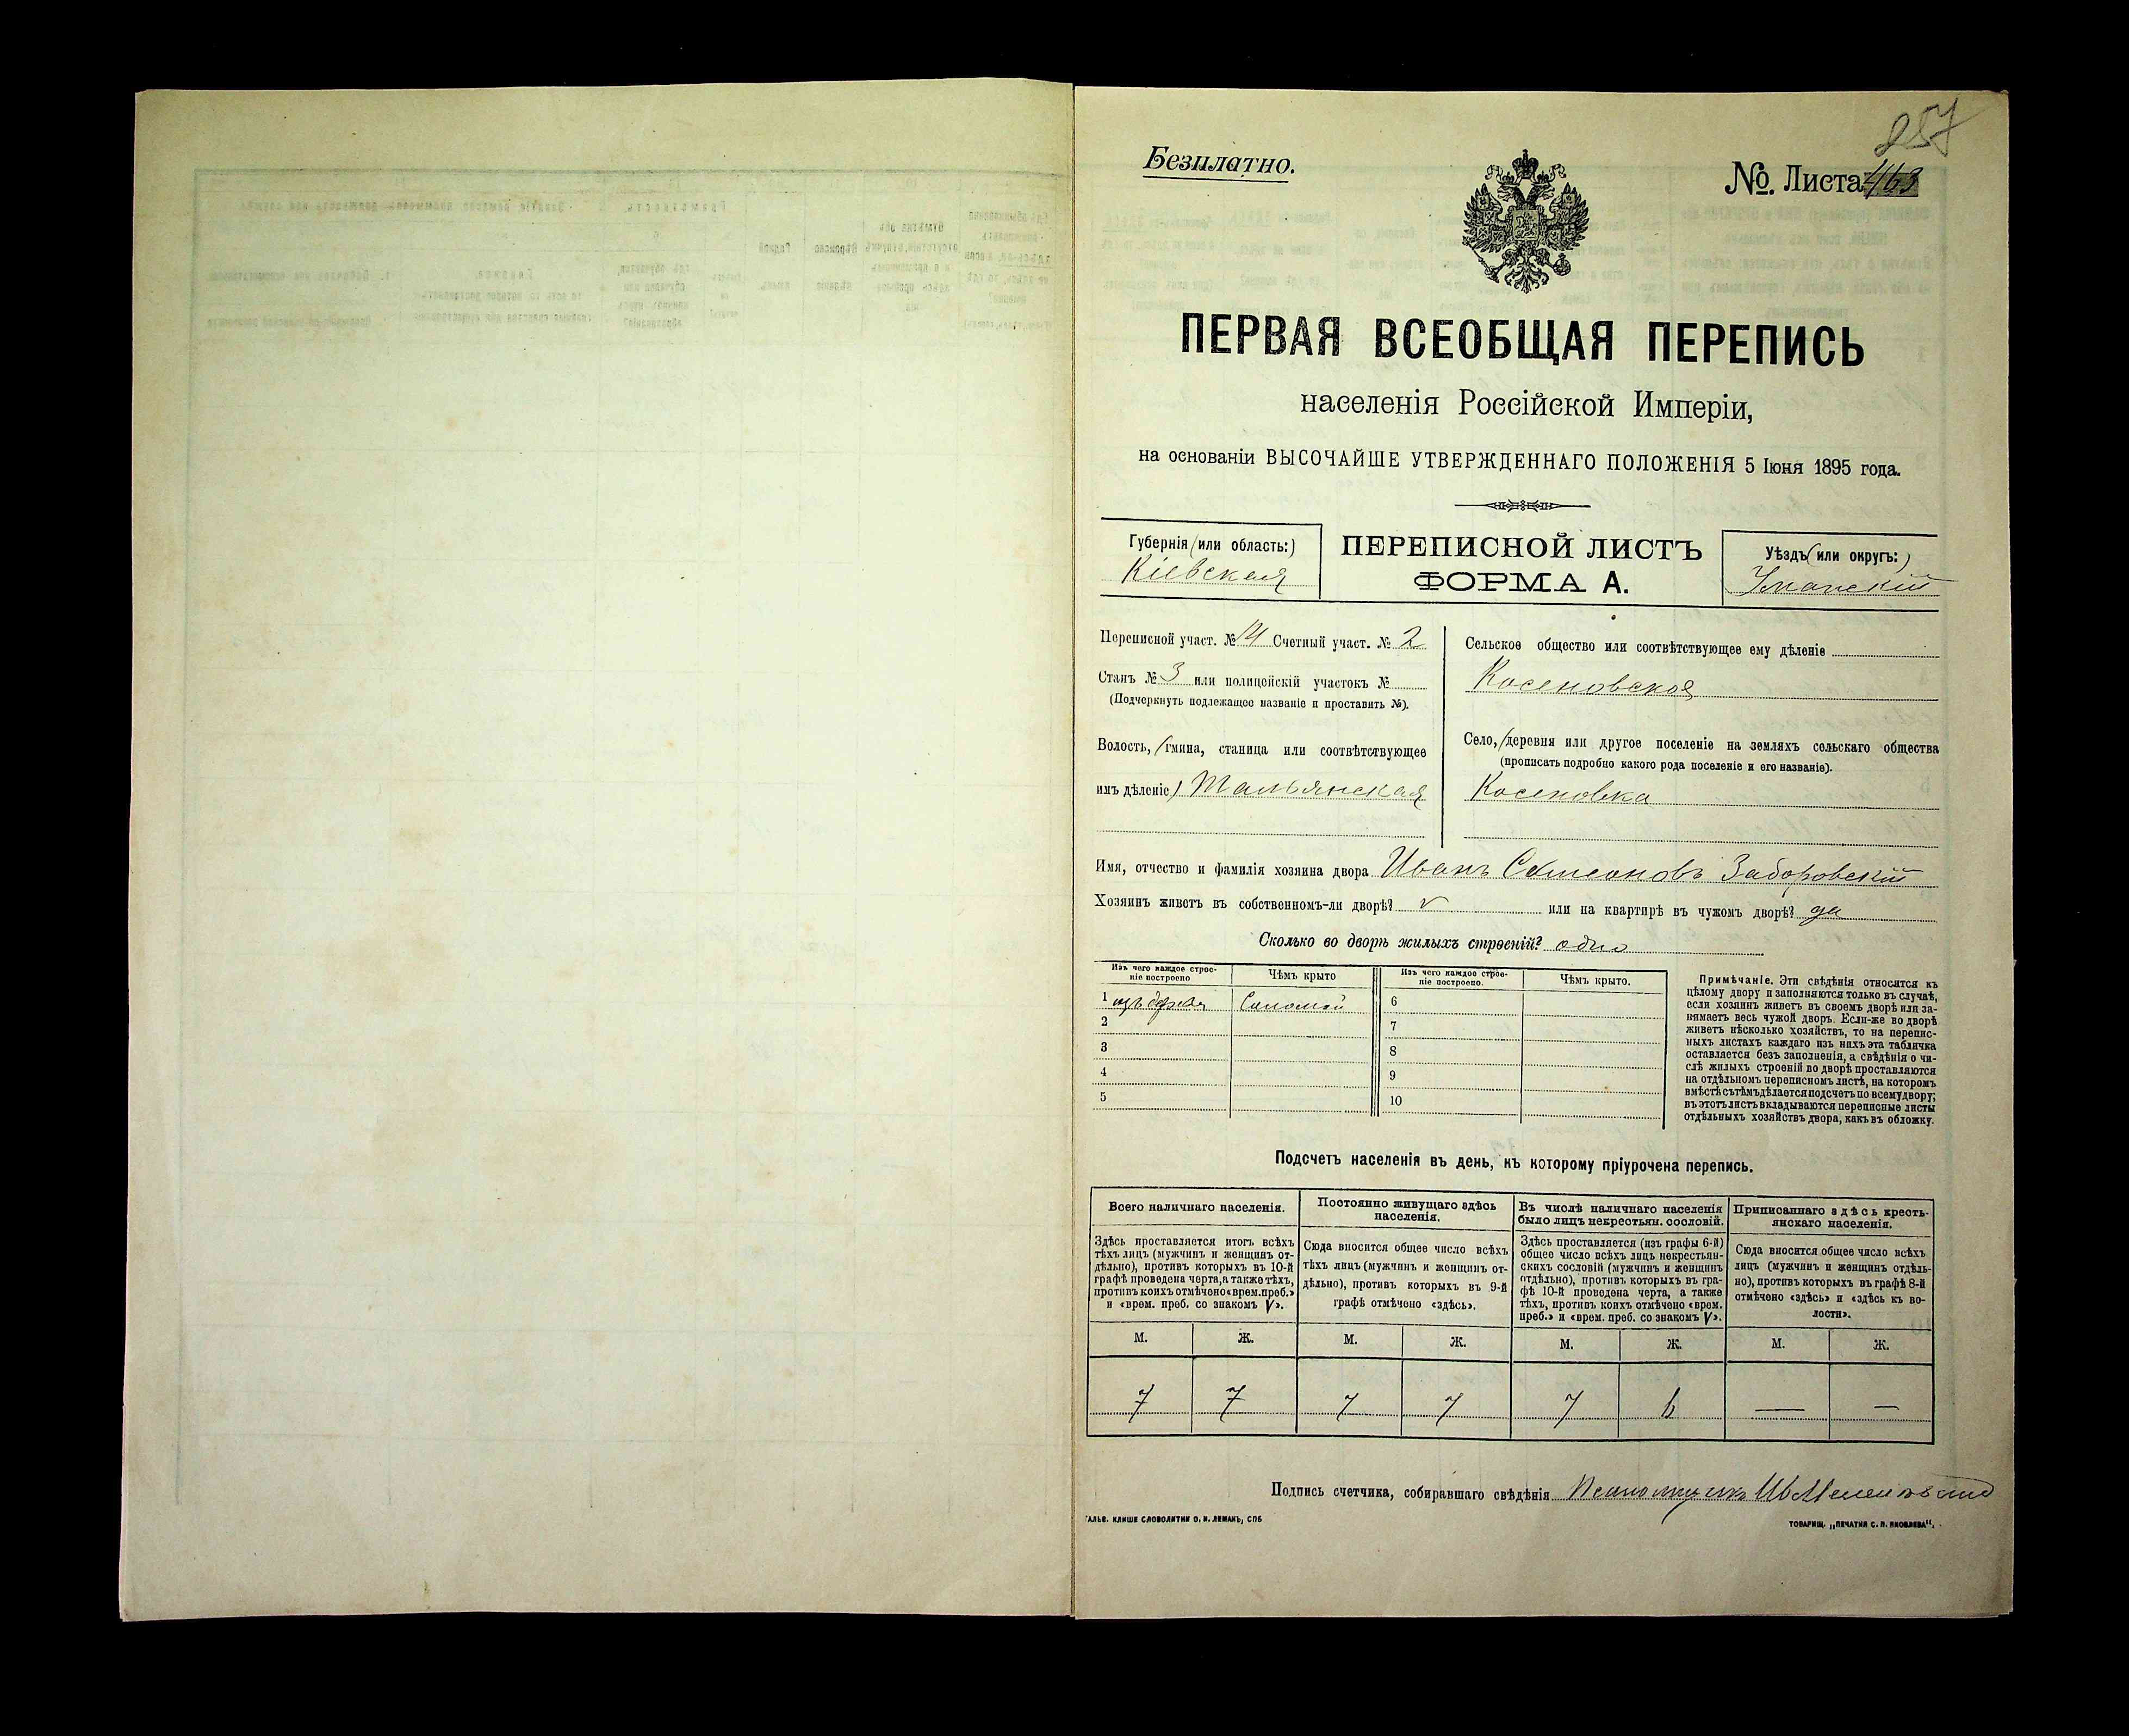 257
Безплатно.
№. Листа 463
ПЕРВАЯ ВСЕОБЩАЯ ПЕРЕПИСЬ
населенія Россійской Имперіи,
на основаніи ВЫСОЧАЙШЕ УТВЕРЖДЕННАГО ПОЛОЖЕНІЯ 5 Іюня 1895 года.
Губернія (или область:)
Кіевская
ПЕРЕПИСНОЙ ЛИСТЪ
ФОРМА А.
Уѣздъ (или округъ:)
Уманскій
Переписной участ. № 14 Счетный участ. № 2
Станъ № 3 или полицейскій участокъ №
(Подчеркнуть подлежащее названіе и проставить №).
Волость, (гмина, станица или соотвѣтствующее
имъ дѣленіе) Тальянская
Сельское общество или соотвѣтствующее ему дѣленіе
Косеновская
Село, (деревня или другое поселеніе на земляхъ сельскаго общества
(прописать подробно какого рода поселеніе и его названіе).
Косеновка
Имя, отчество и фамилія хозяина двора Иванъ Самсоновъ Заборовскій
Хозяинъ живетъ въ собственномъ-ли дворѣ? v или на квартирѣ въ чужомъ дворѣ? да
Сколько во дворѣ жилыхъ строеній? одно
Изъ чего каждое строе-
ніе построено
Чѣмъ крыто
Изъ чего каждое строе-
ніе построено.
Чѣмъ крыто.
1 изъ дерева Соломой
2
3
4
5
6
7
8
9
10
Примѣчаніе. Эти свѣдѣнія относятся къ
цѣлому двору и заполняются только въ случаѣ,
если хозяинъ живетъ въ своемъ дворѣ или за-
нимаетъ весь чужой дворъ. Если-же во дворѣ
живетъ нѣсколько хозяйствъ, то на перепис-
ныхъ листахъ каждаго изъ нихъ эта табличка
оставляется безъ заполненія, а свѣдѣнія о чи-
слѣ жилыхъ строеній во дворѣ проставляются
на отдѣльномъ переписномъ листѣ, на которомъ
вмѣстѣ съ тѣмъ дѣлается подсчетъ по всему двору;
въ этотъ листъ вкладываются переписные листы
отдѣльныхъ хозяйствъ двора, какъ въ обложку.
Подсчетъ населенія въ день, къ которому пріурочена перепись.
Всего наличнаго населенія.
Здѣсь проставляется итогъ всѣхъ
тѣхъ лицъ (мужчинъ и женщинъ от-
дѣльно), противъ которыхъ въ 10-й
графѣ проведена черта, а также тѣхъ,
противъ коихъ отмѣчено «врем. преб.»
и «врем. преб. со знакомъ V».
Постоянно живущаго здѣсь
населенія.
Сюда вносится общее число всѣхъ
тѣхъ лицъ (мужчинъ и женщинъ от-
дѣльно), противъ которыхъ въ 9-й
графѣ отмѣчено «здѣсь».
Въ числѣ наличнаго населенія
было лицъ некрестьян. сословій.
Здѣсь проставляется (изъ графы 6-й)
общее число всѣхъ лицъ некрестьян-
скихъ сословій (мужчинъ и женщинъ
отдѣльно), противъ которыхъ въ гра-
фѣ 10-й проведена черта, а также
тѣхъ, противъ коихъ отмѣчено «врем.
преб.» и «врем. преб. со знакомъ V».
Приписаннаго здѣсь кресть-
янскаго населенія.
Сюда вносится общее число всѣхъ
лицъ (мужчинъ и женщинъ отдѣль-
но), противъ которыхъ въ графѣ 8-й
отмѣчено «здѣсь» и «здѣсь къ во-
лости».
М. Ж. М. Ж. М. Ж. М. Ж.
7 7 7 7 7 6 — —
Подпись счетчика, собиравшаго свѣдѣнія Псаломщикъ
ГАЛЬВ. КЛИШЕ СЛОВОЛИТНИ О. И. ЛЕМАНЪ, СПБ
ТОВАРИЩ. „ПЕЧАТНЯ С. П. ЯКОВЛЕВА“.